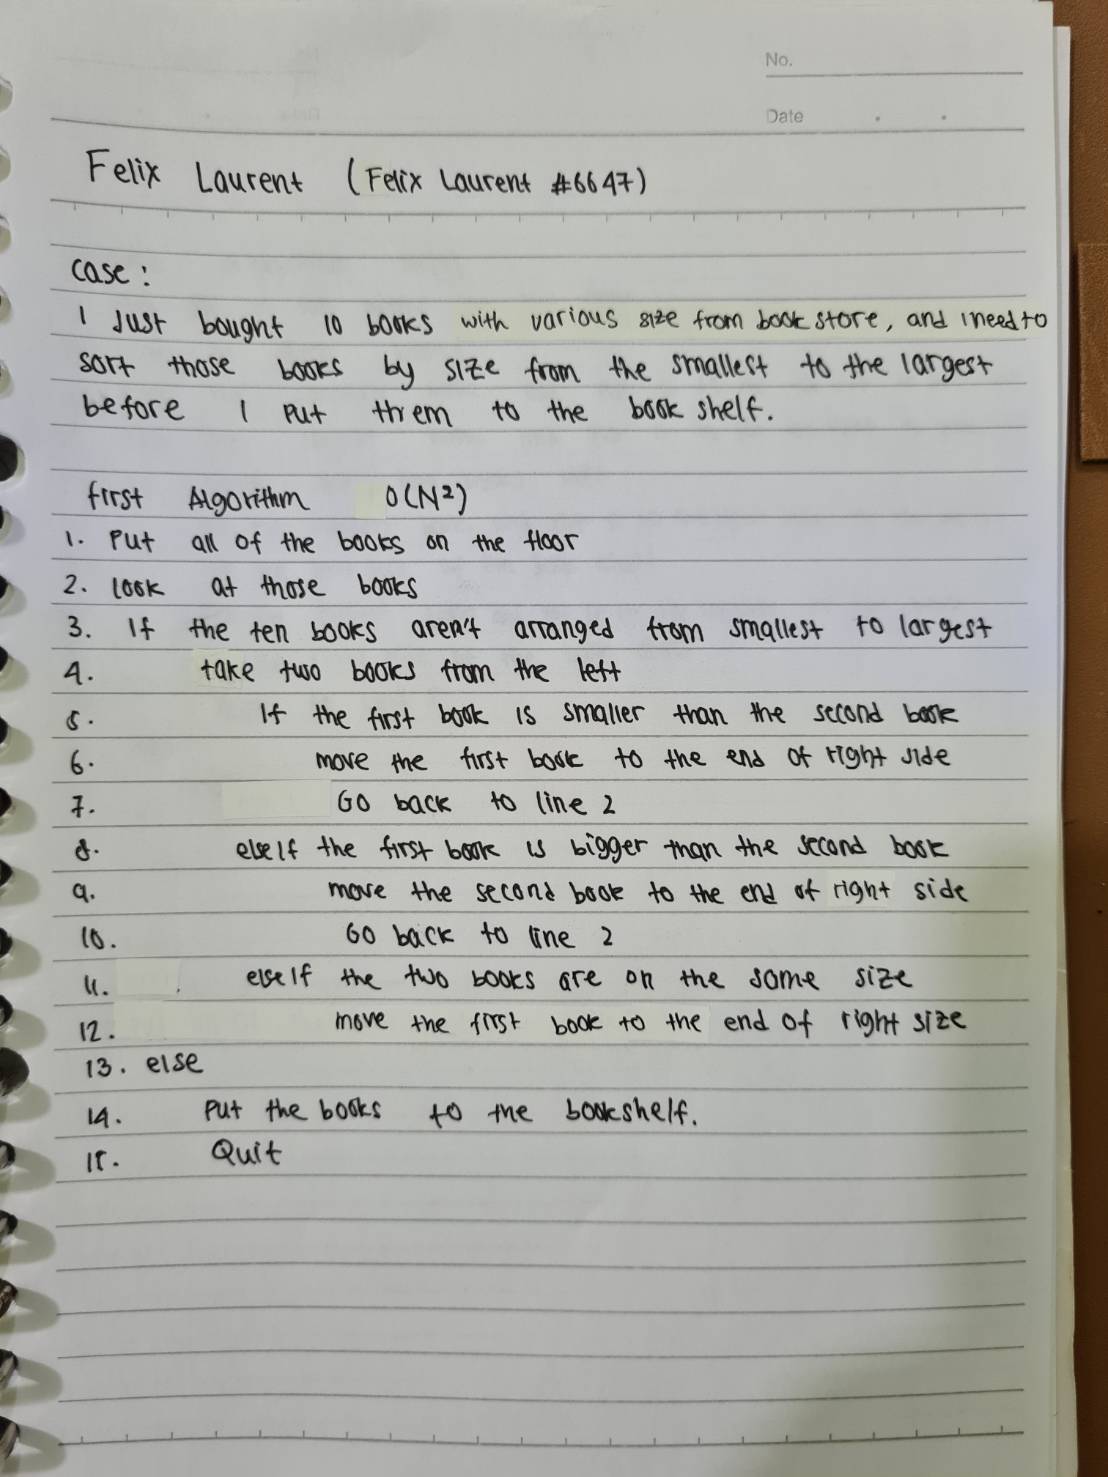 No.
Date
Felix Laurent (Felix Laurent #6647)
case:
I Just bought 10 books with various size from book store, and I need to
sort those books by size from the smallest to the largest
before I put them to the book shelf.
first Algorithm O(N²)
1. Put all of the books on the floor
2. look at those books
3. If the ten books aren't arranged from smallest to largest
4. take two books from the left
5. If the first book is smaller than the second book
6. move the first book to the end of right side
7. Go back to line 2
8. else if the first book is bigger than the second book
9. move the second book to the end of right side
10. Go back to line 2
11. else if the two books are on the same size
12. move the first book to the end of right size
13. else
14. Put the books to the bookshelf.
15. Quit